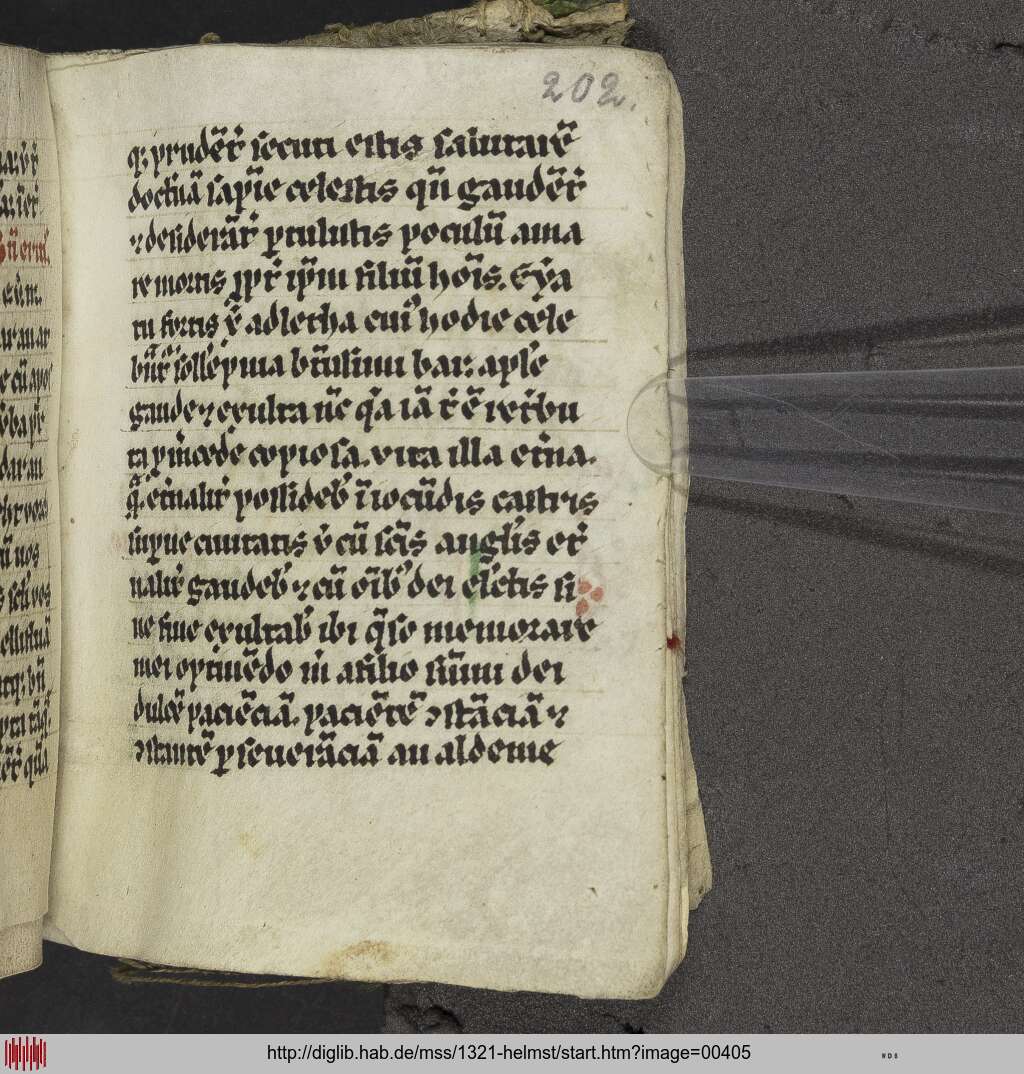 202.
q; prudēt͛ secuti estis salutarē
doct͛nā sapīe celestis qn̄ gaudēt͛
⁊ desiderāt͛ ptulistis poculū ama
re mortis ꝓpt͛ ip̄m filiū hoīs. Eya
tu fortis ⁊ adletha cui͛ hodie cele
sollēpnia bar aple
gaude ⁊ exulta nc̄ q͛a iā t͛ ē ret͛bu
ta m͛cede copiosa. vita illa et͛na.
q̄ et͛nalit͛ possideb͛ ī iocūdis castris
supne ciuitatis ⁊ cū sc̄is angl͛is et͛
nalit͛ gaudeb͛ ⁊ cū oīb͛ dei el͛ctis si
ne fine exultab͛ ibi q̄so memorare
mei opt͛nēdo m͛ a filio dei
dulcē paciēciā. paciētē ꝯstāciā ⁊
ꝯstantē pseuerāciā an aldeme
http://diglib.hab.de/mss/1321-helmst/start.htm?image=00405